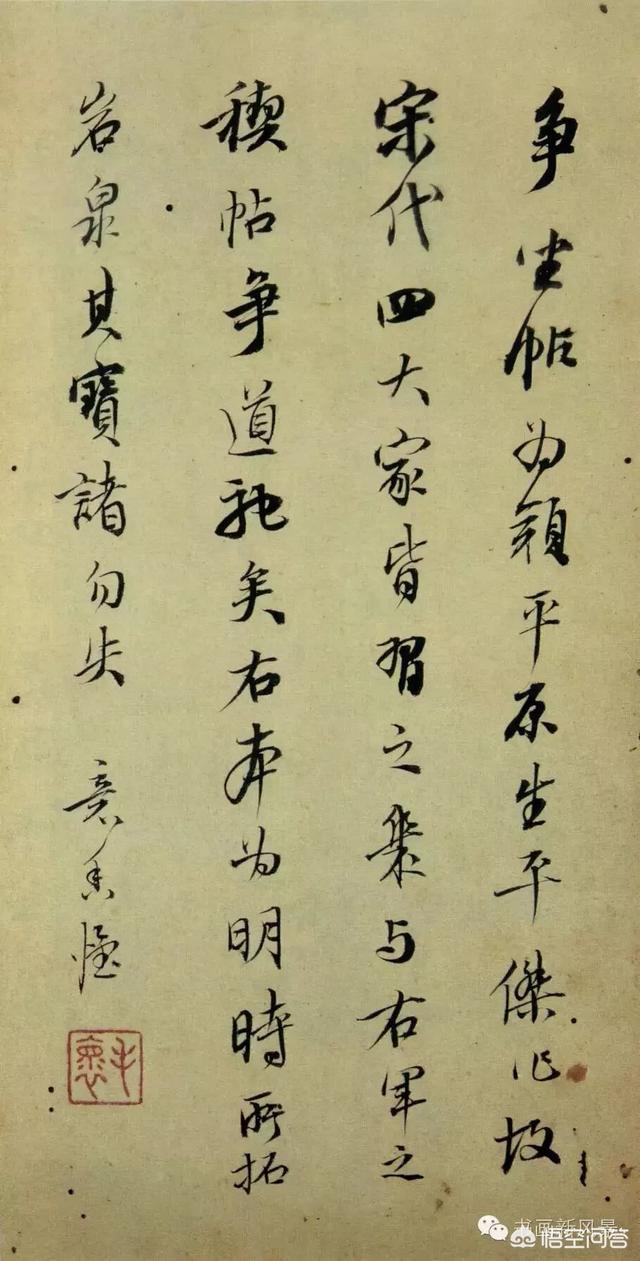 争坐帖为颜平原生平傑作故
宋代四大家皆習之与右軍之
禊帖争道馳矣右本为明時所拓
岩泉其寶諸勿失
书画新风景
悟空问答